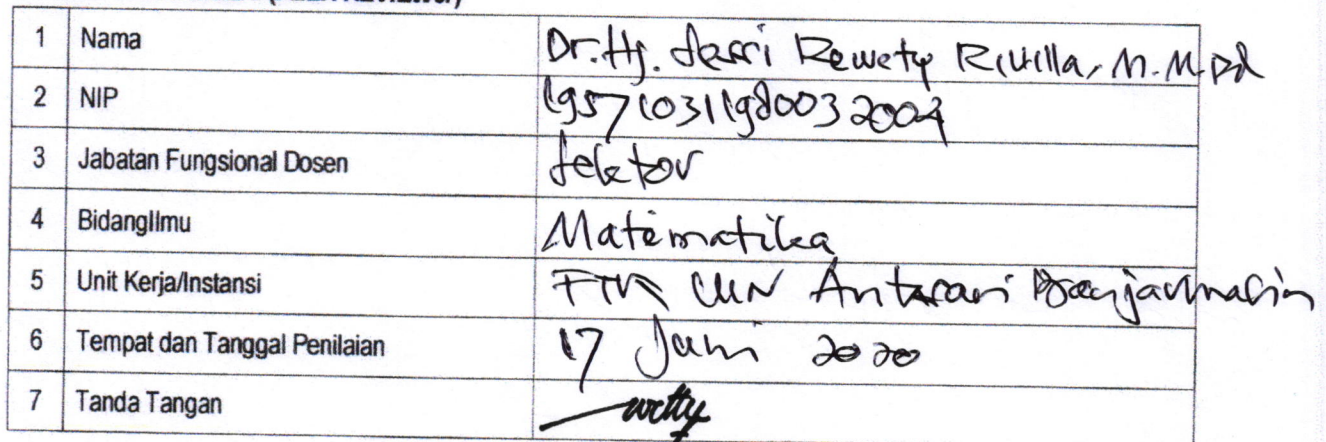 (PEER REVIEWER)
1 Nama Dr. Hj. Rewety Rivilla, M.M.Pd
2 NIP 195710311980032004
3 Jabatan Fungsional Dosen Lektor
4 BidangIlmu Matematika
5 Unit Kerja/Instansi FTK UIN Antasari Banjarmasin
6 Tempat dan Tanggal Penilaian 17 Juni 2020
7 Tanda Tangan wetty